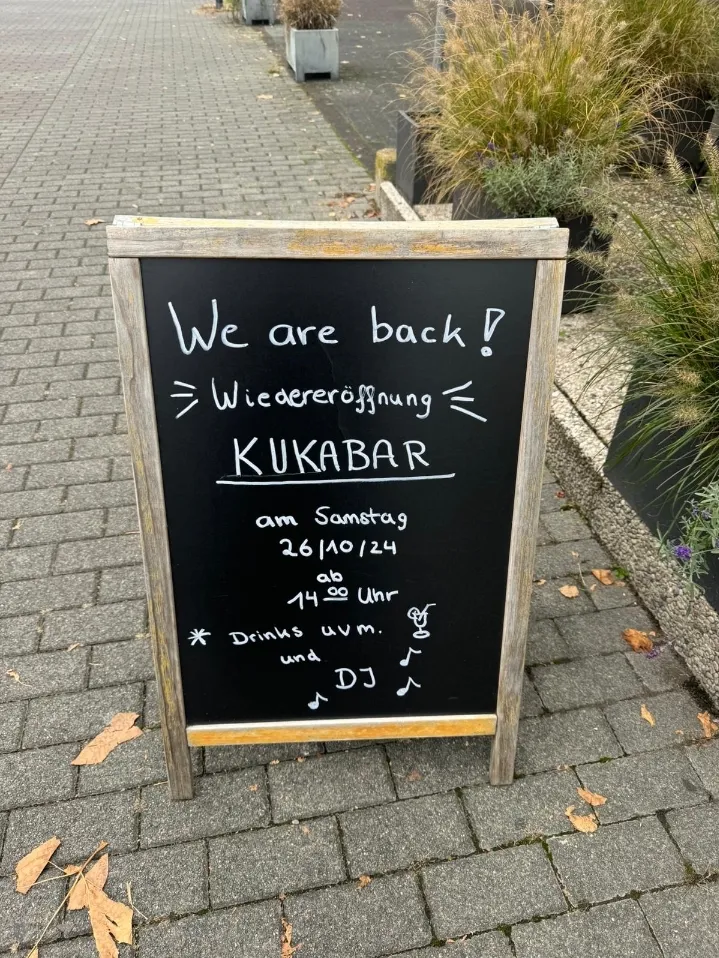 We are back!
Wiedereröffnung
KUKABAR
am Samstag
26/10/24
ab
14 00 Uhr
* Drinks uvm.
und
DJ